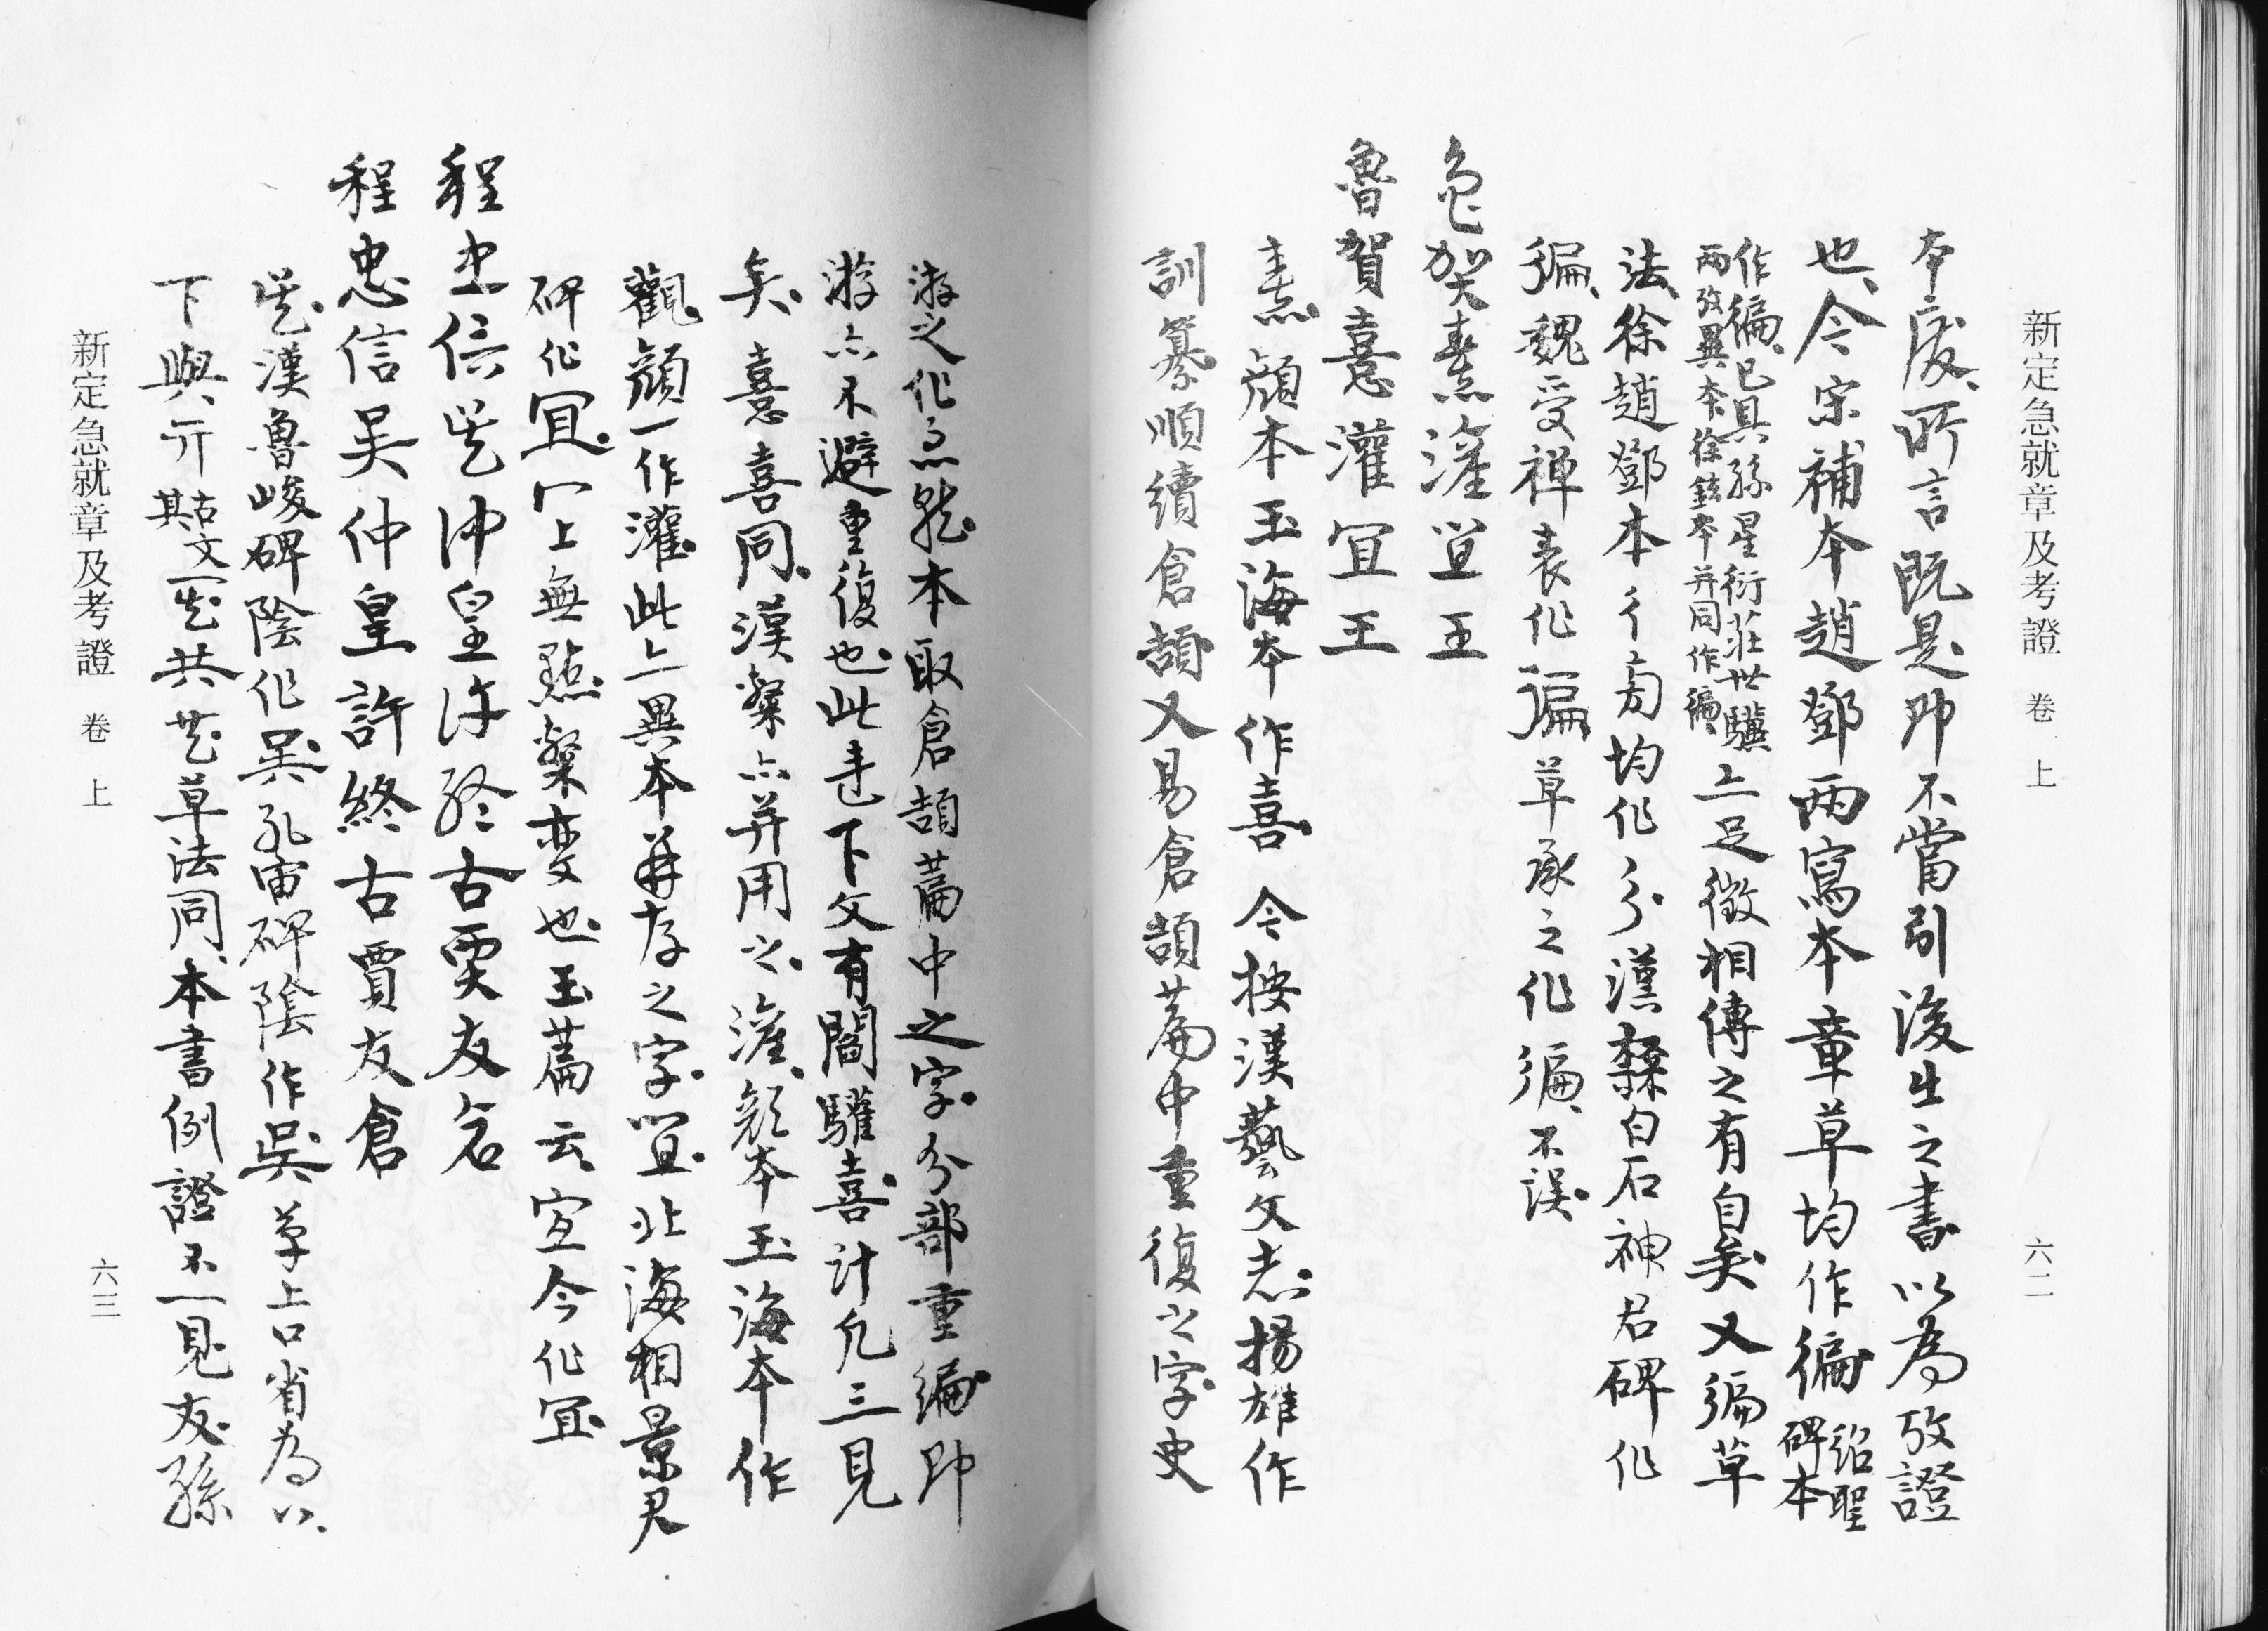 新定急就章及考證 卷上 六二
本廢、所言既是即不當引後生之書以為攷證
也、今宗補本趙鄧兩寫本章草均作徧 紹聖碑本
作徧、已具孫星衍莊世驥
兩攷異本徐鉉本并同作徧、
上足徵相傳之有自矣又徧草
法、徐趙鄧本彳旁均作亻漢隸白石神君碑作
徧、魏受禪表作徧草承之作徧、不誤
賀憙灌宜王
魯賀憙灌宜王
憙、顏本玉海本作喜、今按漢藝文志揚雄作
訓纂順續倉頡又易倉頡篇中重復之字史
游之作急就本取倉頡篇中之字分部重編即
游亦不避重復也此違下文有閻驩喜計凡三見
矣、憙喜同、漢隸亦并用之、灌、顏本玉海本作
觀、顏一作灌此亦異本并存之字、宜北海相景君
碑作冝、冖上無點隸變也玉篇云宐今作宜
程忠信吳仲皇許終古賈友倉
程忠信吳仲皇許終古賈友倉
吳、漢魯峻碑陰作吴、孔宙碑陰作吳、草上口省為八、
下與亓 古文其 共草法同、本書例證不一見友、孫
新定急就章及考證 卷上 六三